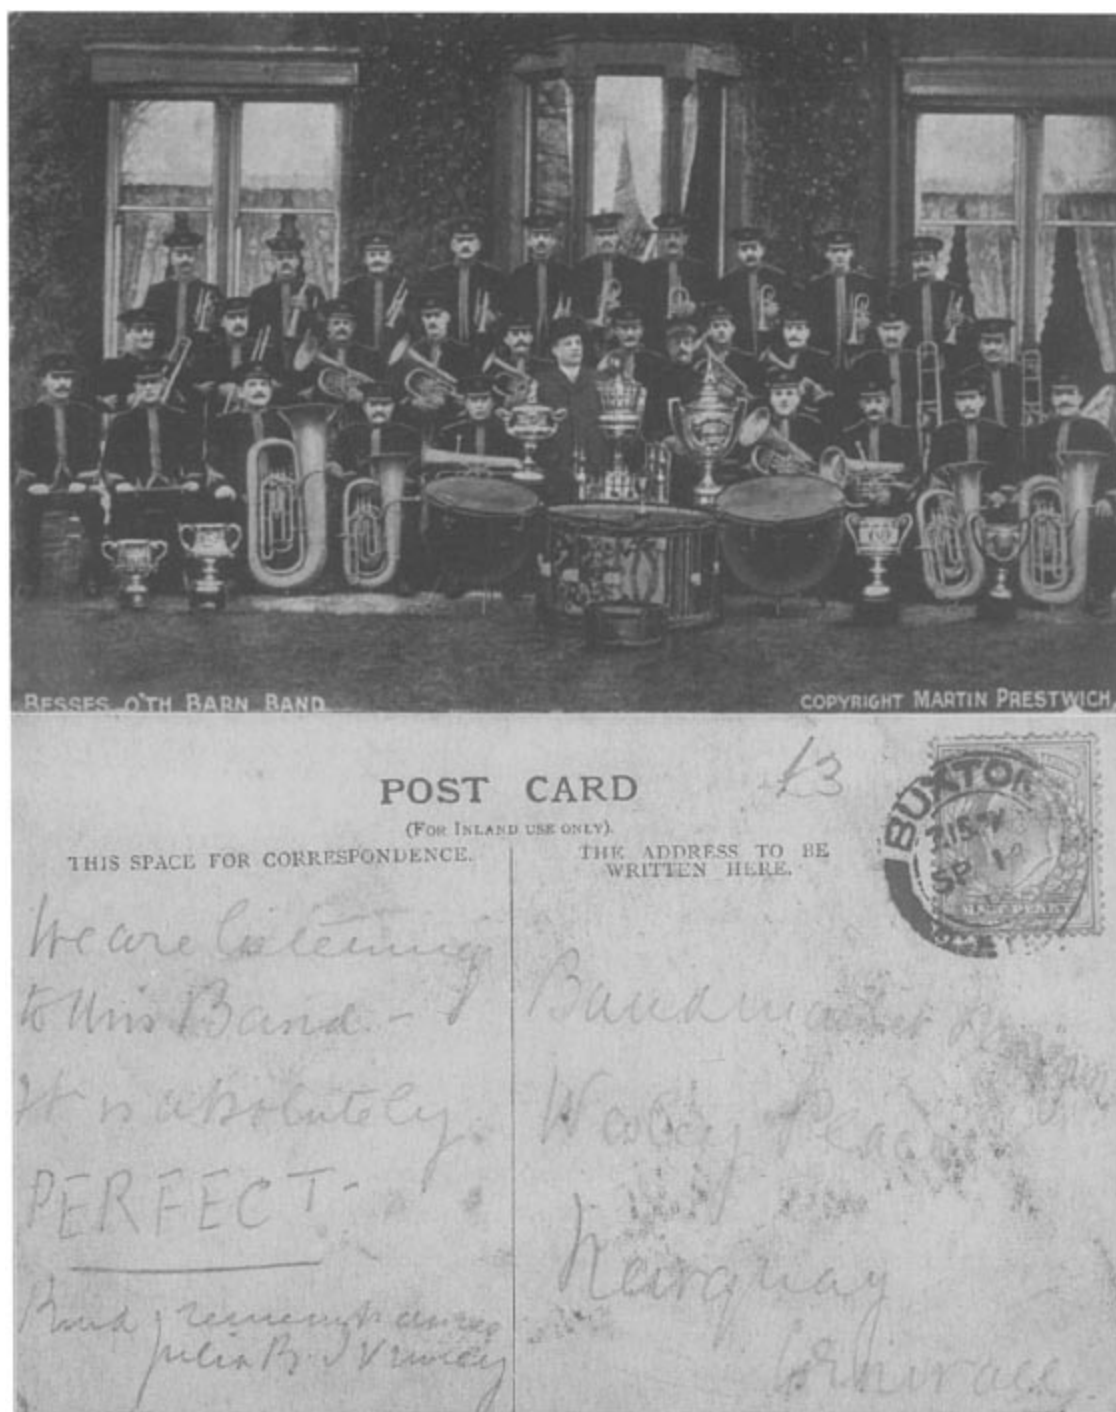 BESSES O'TH BARN BAND
COPYRIGHT MARTIN PRESTWICH
£3
POST CARD
(FOR INLAND USE ONLY).
THIS SPACE FOR CORRESPONDENCE.
THE ADDRESS TO BE
WRITTEN HERE.
BUXTON
SP 1
HALFPENNY
We are listening
to this Band -
It is absolutely
PERFECT -
Kind remembrances
Julia B.
Bandmaster
Wesley
Newquay
Cornwall